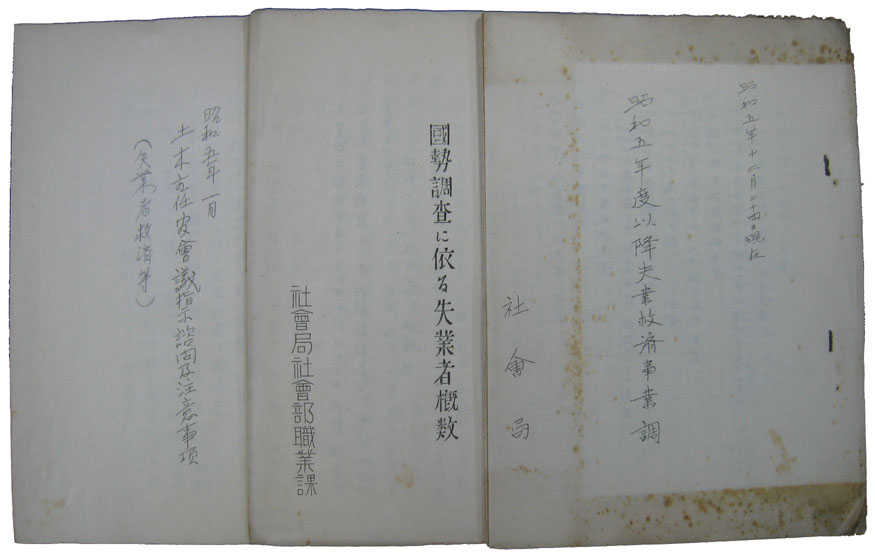 昭和五年十二月二十四日現在
昭和五年度以降失業救済事業調
社會局
國勢調査に依る失業者概数
社會局社會部職業課
昭和五年一月
土木主任官會議指示諮問及注意事項
(失業者救済等)